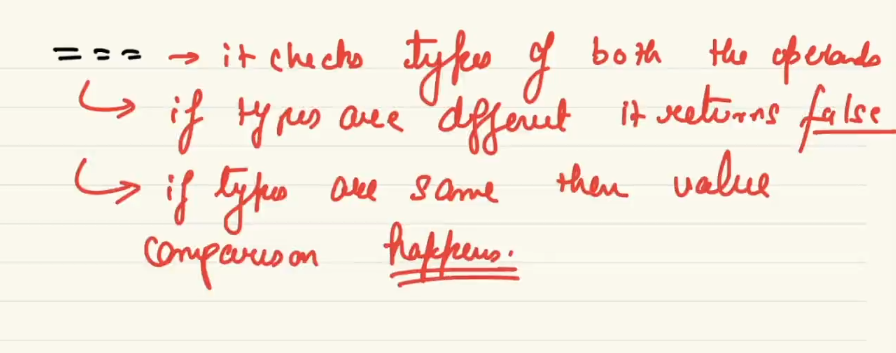 === → it checks types of both the operands
↳ if types are different it returns false
↳ if types are same then value
comparison happens.